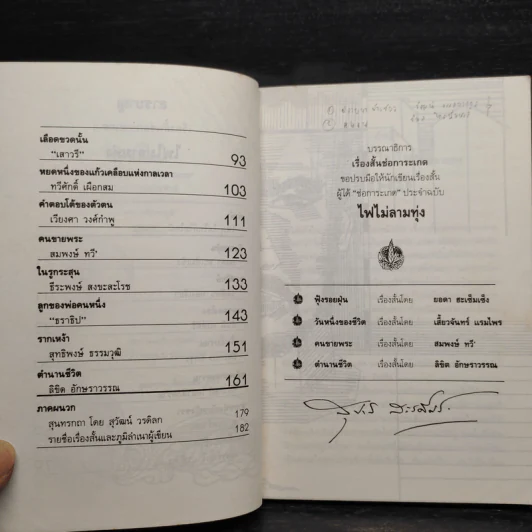 เลือดขวดนั้น
"เสาวรี" 93
หยดหนึ่งของแก้วเคลือบแห่งกาลเวลา
ทวีศักดิ์ เผือกสม 103
คำตอบใต้ของตัวตน
เวียงคา วงศ์กำพู 111
คนขายพระ
สมพงษ์ ทวี' 123
ในรูกระสุน
ธีระพงษ์ สงขะละโรช 133
ลูกของพ่อคนหนึ่ง
"ธราธิป" 143
รากเหง้า
สุทธิพงษ์ ธรรมวุฒิ 151
ตำนานชีวิต
ลิขิต อักษราวรรณ 161
ภาคผนวก
สุนทรกถา โดย สุวัฒน์ วรดิลก 179
รายชื่อเรื่องสั้นและภูมิลำเนาผู้เขียน 182
บรรณาธิการ
เรื่องสั้นช่อการะเกด
ขอปรบมือให้นักเขียนเรื่องสั้น
ผู้ได้ "ช่อการะเกด" ประจำฉบับ
ไฟไม่ลามทุ่ง
ฟุ้งรอยฝุ่น เรื่องสั้นโดย ยอดา
วันหนึ่งของชีวิต เรื่องสั้นโดย เสี้ยวจันทร์ แรมไพร
คนขายพระ เรื่องสั้นโดย สมพงษ์ ทวี'
ตำนานชีวิต เรื่องสั้นโดย ลิขิต อักษราวรรณ